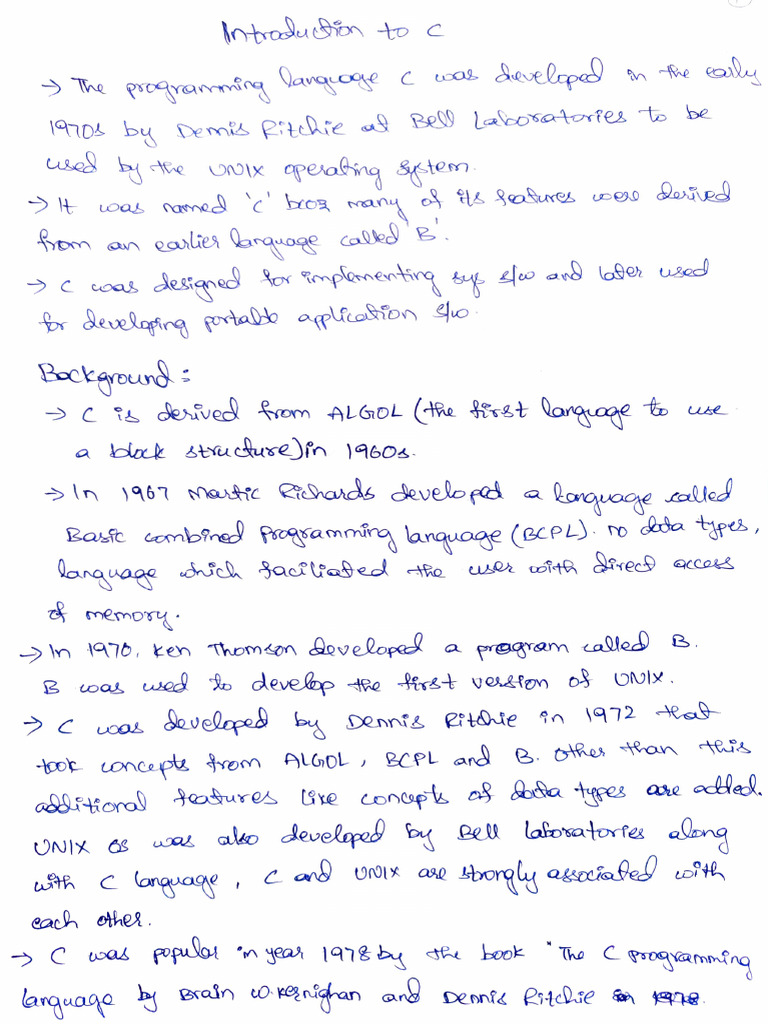 Introduction to C
→ The programming language C was developed in the early
1970s by Dennis Ritchie at Bell Laboratories to be
used by the UNIX operating system.
→ It was named 'C' bcoz many of its features were derived
from an earlier language called 'B'.
→ C was designed for implementing sys s/w and later used
for developing portable application s/w.
Background:
→ C is derived from ALGOL (the first language to use
a block structure) in 1960s.
→ In 1967 Martic Richards developed a language called
Basic combined programming language (BCPL). no data types,
language which faciliated the user with direct access
of memory.
→ In 1970, Ken Thomson developed a program called B.
B was used to develop the first version of UNIX.
→ C was developed by Dennis Ritchie in 1972 that
took concepts from ALGOL, BCPL and B. Other than this
additional features like concepts of data types are added.
UNIX OS was also developed by Bell laboratories along
with C language, C and UNIX are strongly associated with
each other.
→ C was popular in year 1978 by the book "The C programming
language by Brain W. Kernighan and Dennis Ritchie in 1978.